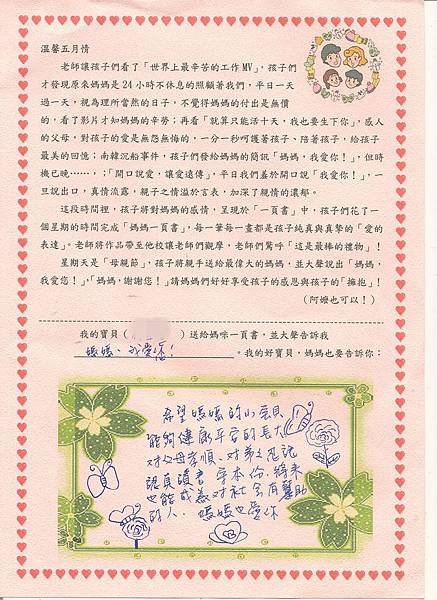 溫馨五月情
老師讓孩子們看了「世界上最辛苦的工作MV」，孩子們
才發現原來媽媽是24小時不休息的照顧著我們，平日一天
過一天，視為理所當然的日子，不覺得媽媽的付出是無價
的，看了影片才知媽媽的辛勞；再看「就算只能活十天，我也要生下你」，感人
的父母，對孩子的愛是無怨無悔的，一分一秒呵護著孩子、陪著孩子，給孩子
最美的回憶；南韓沉船事件，孩子們發給媽媽的簡訊「媽媽，我愛你！」，但時
機已晚……，；「開口說愛，讓愛遠傳」，平日我們羞於開口說「我愛你！」，一
旦說出口，真情流露，親子之情溢於言表，加深了親情的濃郁。
這段時間裡，孩子將對媽媽的感情，呈現於「一頁書」中，孩子們花了一
個星期的時間完成「媽媽一頁書」，每一筆每一畫都是孩子純真與真摯的「愛的
表達」。老師將作品帶至他校讓老師們觀摩，老師們驚呼「這是最棒的禮物」！
星期天是「母親節」，孩子將親手送給最偉大的媽媽，並大聲說出「媽媽，
我愛您！」，「媽媽，謝謝您！」請媽媽們好好享受孩子的感恩與孩子的「擁抱」！
（阿嬤也可以！）
我的寶貝（ ）送給媽咪一頁書，並大聲告訴我
媽媽、我愛您！。我的好寶貝，媽媽也要告訴你：
希望媽媽的小寶貝
能夠健康平安的長大
對父母孝順、對弟妹忍讓
認真讀書 守本份、將來
也能成為對社會有幫助
的人. 媽媽也愛你